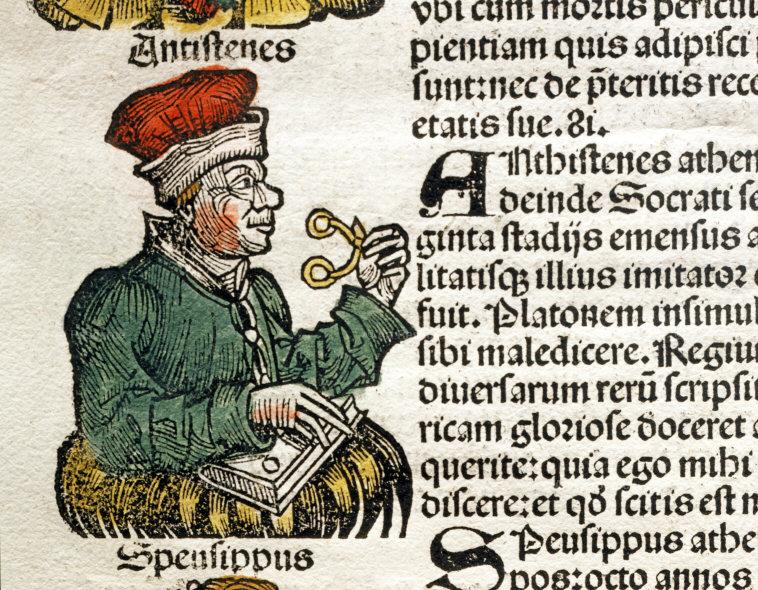 Antistenes
vbi cum mortis
pientiam quis adipisci
sunt:nec de p̄teritis
etatis sue.81.
ANthistenes
deinde Socrati
ginta stadijs emensus
litatisqꝫ illius imitator
fuit. Platonem
sibi maledicere. Regiu
diuersarum rerū
ricam gloriose doceret
querite:quia ego mihi
discere:et qd̓ scitis est
Speusippus
SPeusippus
pos:octo annos